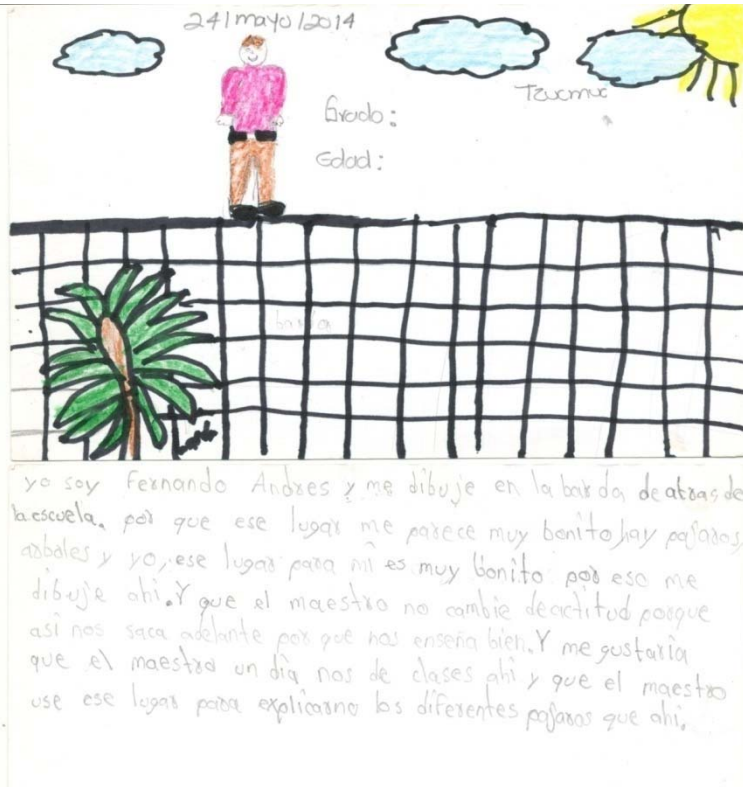 24/mayo/2014
Tzucmuc
Grado:
Edad:
barda
yo soy Fernando Andres y me dibuje en la barda de atras de
la escuela. por que ese lugar me parece muy bonito hay pajaros,
arboles y yo, ese lugar para mi es muy bonito por eso me
dibuje ahi. Y que el maestro no cambie de actitud porque
asi nos saca adelante por que nos enseña bien. Y me gustaria
que el maestro un dia nos de clases ahi y que el maestro
use ese lugar para explicarno los diferentes pajaros que ahi.